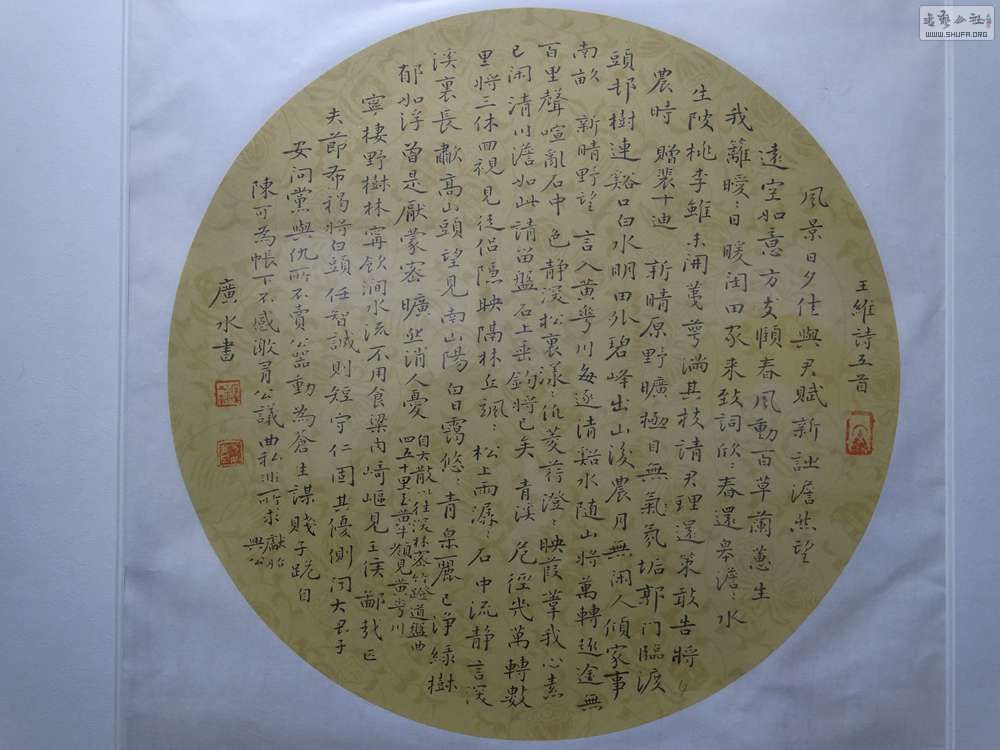 王維詩五首
風景日夕佳與君賦新詩澹然望
遠空如意方支頤春風動百草蘭蕙生
我籬曖〻日暖閨田家來致詞欣〻春還皋澹〻水
生陂桃李雖未開荑萼滿其枝請君理還策敢告將
農時 贈裴十迪 新晴原野曠極目無氣氛垢郭門臨渡
頭邨樹連谿口白水明田外碧峰出山後農月無閑人傾家事
南畝 新晴野望 言入黃華川每逐清谿水随山將萬轉趣途無
百里聲喧亂石中色靜深松裏漾〻汎菱荇澄〻映葭葦我心素
已闲清川澹如此請留盤石上垂釣將已矣 青溪 危徑幾萬轉數
里將三休回視見徒侶隱映隔林丘颯〻松上雨潺〻石中流靜言深
溪裏長歗高山頭望見南山陽白日靄悠〻青皋麗已淨綠樹
郁如浮曾是厭蒙密曠然消人憂 自大散以往深林密竹蹬道盤曲
四五十里至黄牛嶺見黄花川
寧棲野樹林寧飲澗水流不用食梁肉崎嶇見王侯鄙哉匹
夫節布褐將白頭任智誠則短守仁固其優側聞大君子
安問黨與仇所不賣公器動為蒼生謀賤子跪自
陳可為帳下不感激有公議曲私非所求 獻始
興公
廣水書
書藝公社
WWW.SHUFA.ORG